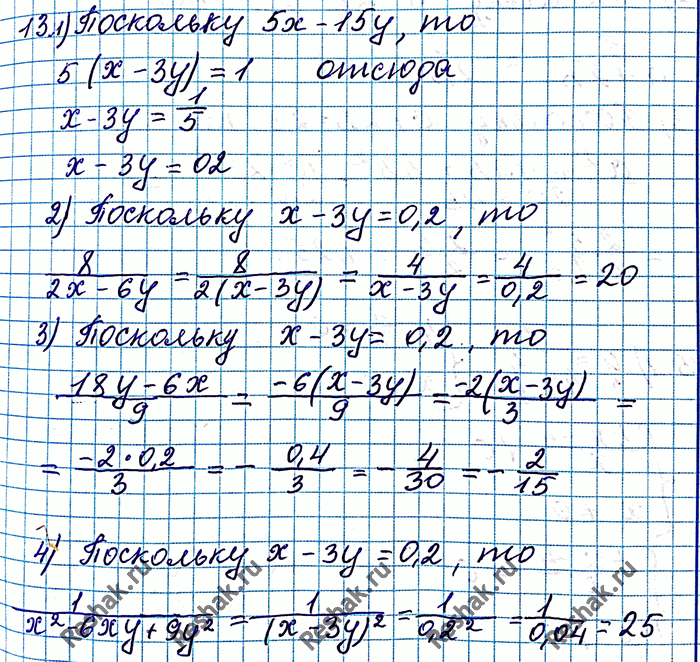 13.1) Поскольку 5x - 15y, то
5 (x - 3y) = 1 отсюда
x - 3y = 1/5
x - 3y = 02
2) Поскольку x - 3y = 0,2, то
8/(2x - 6y) = 8/(2(x - 3y)) = 4/(x - 3y) = 4/0,2 = 20
3) Поскольку x - 3y = 0,2, то
(18y - 6x)/9 = (-6(x - 3y))/9 = (-2(x - 3y))/3 =
= (-2 · 0,2)/3 = - 0,4/3 = - 4/30 = - 2/15
4) Поскольку x - 3y = 0,2, то
1/(x² - 6xy + 9y²) = 1/(x - 3y)² = 1/0,2² = 1/0,04 = 25
Reshak.ru Reshak.ru Reshak.ru Reshak.ru Reshak.ru